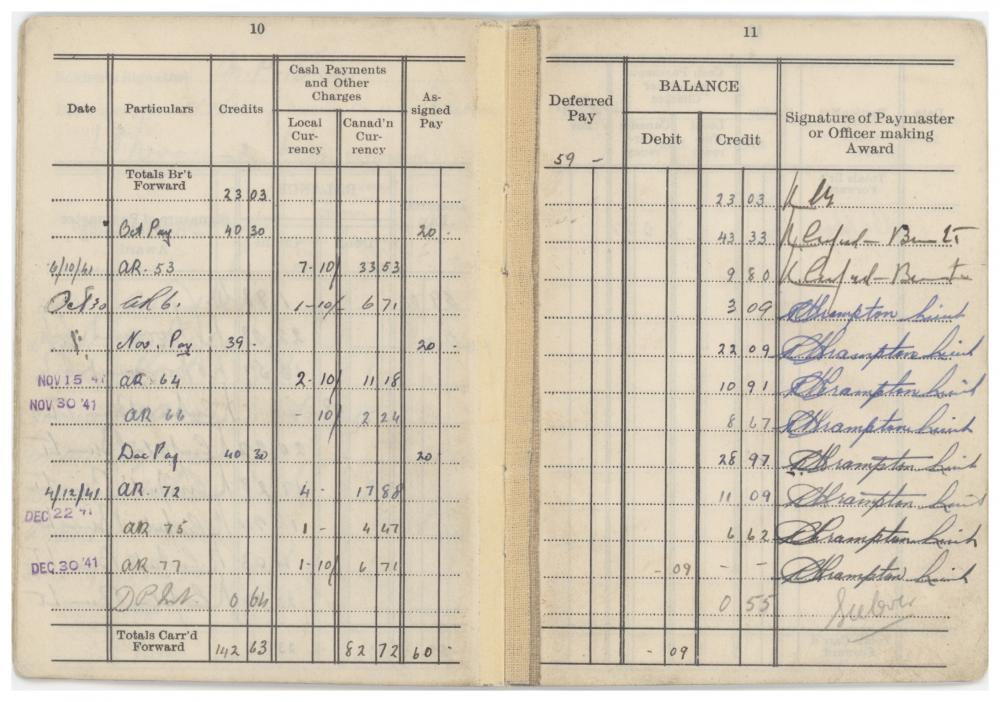 10
Date Particulars Credits Cash Payments and Other Charges As-signed Pay
Local Cur-rency Canad'n Cur-rency
Totals Br't Forward 23 03
Oct Pay 40 30 20 -
6/10/41 AR. 53 7-10/ 33 53
Oct 30 AR 6. 1-10/- 6 71
Nov. Pay 39 - 20 -
NOV 15 '41 AR 64 2-10/ 11 18
NOV 30 '41 AR 66 - 10/ 2 24
Dec Pay 40 30 20
4/12/41 AR. 72 4 - 17 88
DEC 22 '41 AR 75 1 - 4 47
DEC 30 '41 AR 77 1-10/ 6 71
D P Int. 0 64
Totals Carr'd Forward 142 63 82 72 60 -
11
Deferred Pay BALANCE Signature of Paymaster or Officer making Award
Debit Credit
59 -
23 03
43 33
9 80
3 09 Hrampton Lieut
22 09 Hrampton Lieut
10 91 Hrampton Lieut
8 67 Hrampton Lieut
28 97 Hrampton Lieut
11 09 Hrampton Lieut
6 62 Hrampton Lieut
- 09 - - Hrampton Lieut
0 55
- 09